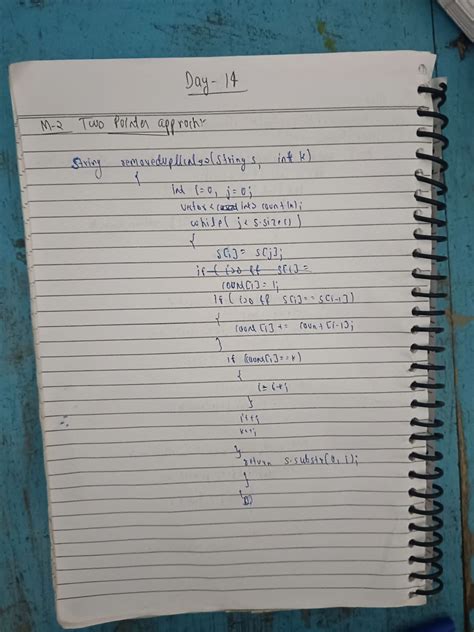 Day-14
M-2 Two Pointer approch:-
String removeduplicates(string s, int k)
{
int i=0, j=0;
vector<int> count(n);
while( j < s.size() )
{
s[i] = s[j];
if ( i>0 && s[i] =
count[i] = 1;
if ( i>0 && s[i]==s[i-1])
{
count[i] += count[i-1];
}
if (count[i]==k)
{
i=i-k;
}
i++;
}
return s.substr(0, i);
}